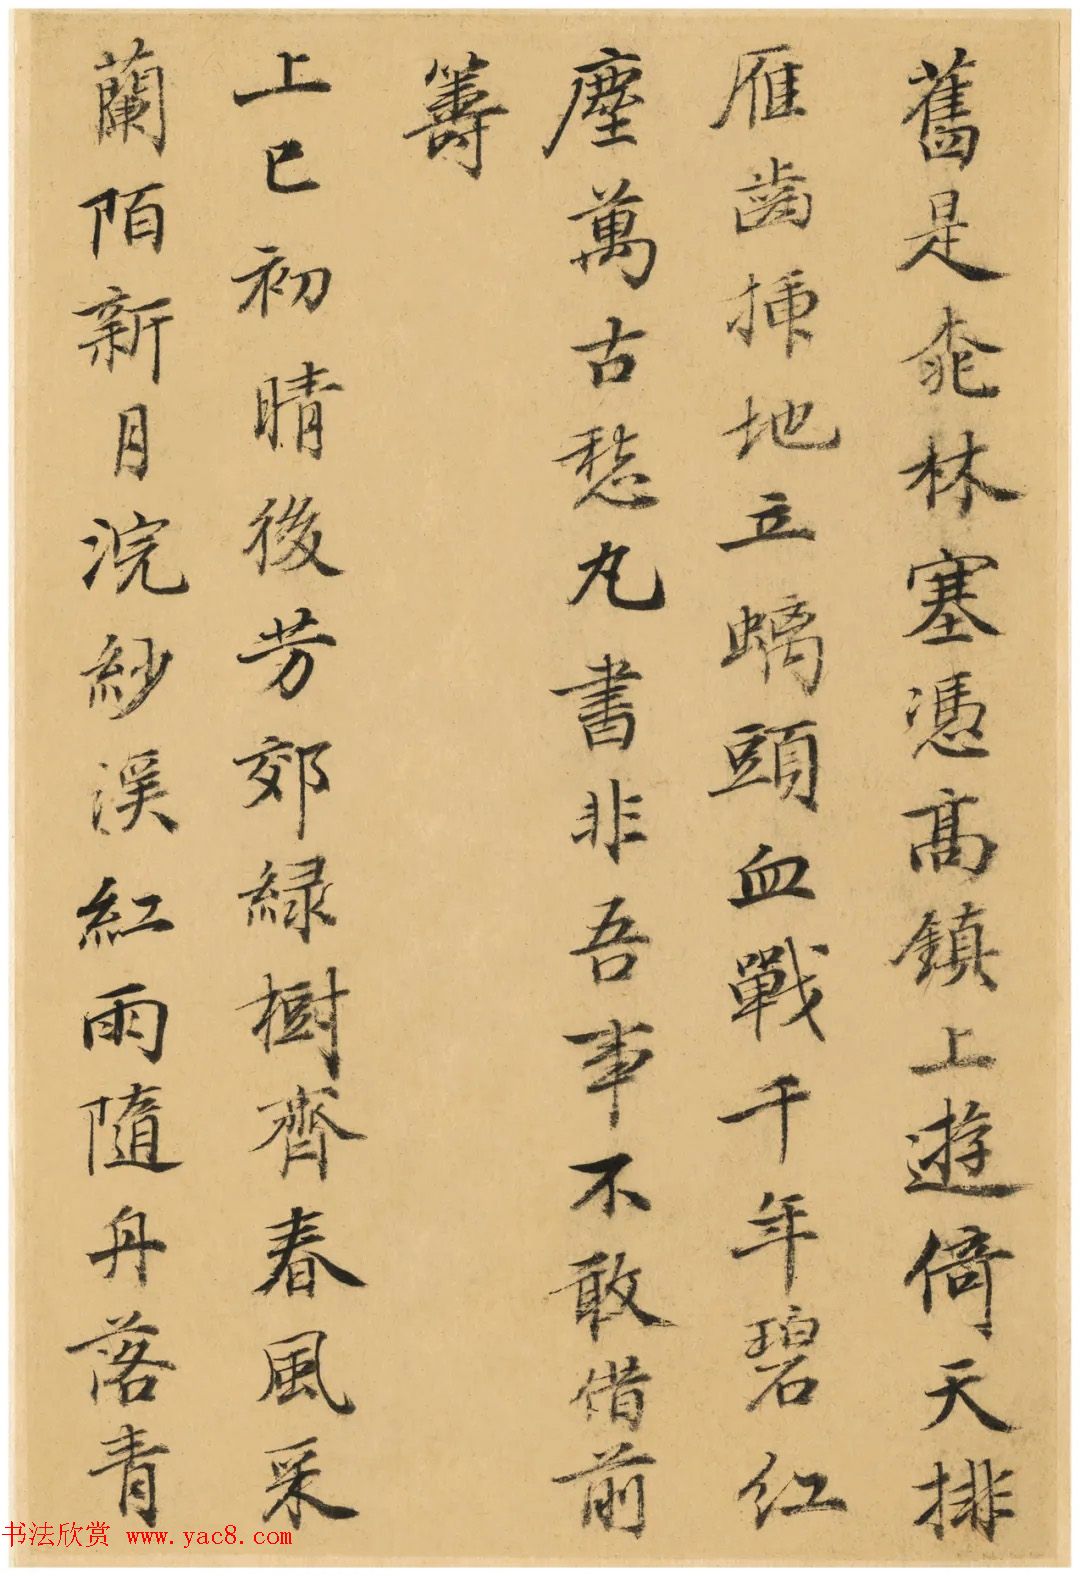 舊是桃林塞憑高鎮上遊倚天排
雁齒揷地立螭頭血戰千年碧紅
塵萬古愁丸書非吾事不敢借前
籌
上巳初晴後芳郊綠樹齊春風采
蘭陌新月浣紗溪紅雨隨舟落青
书法欣赏 www.yac8.com